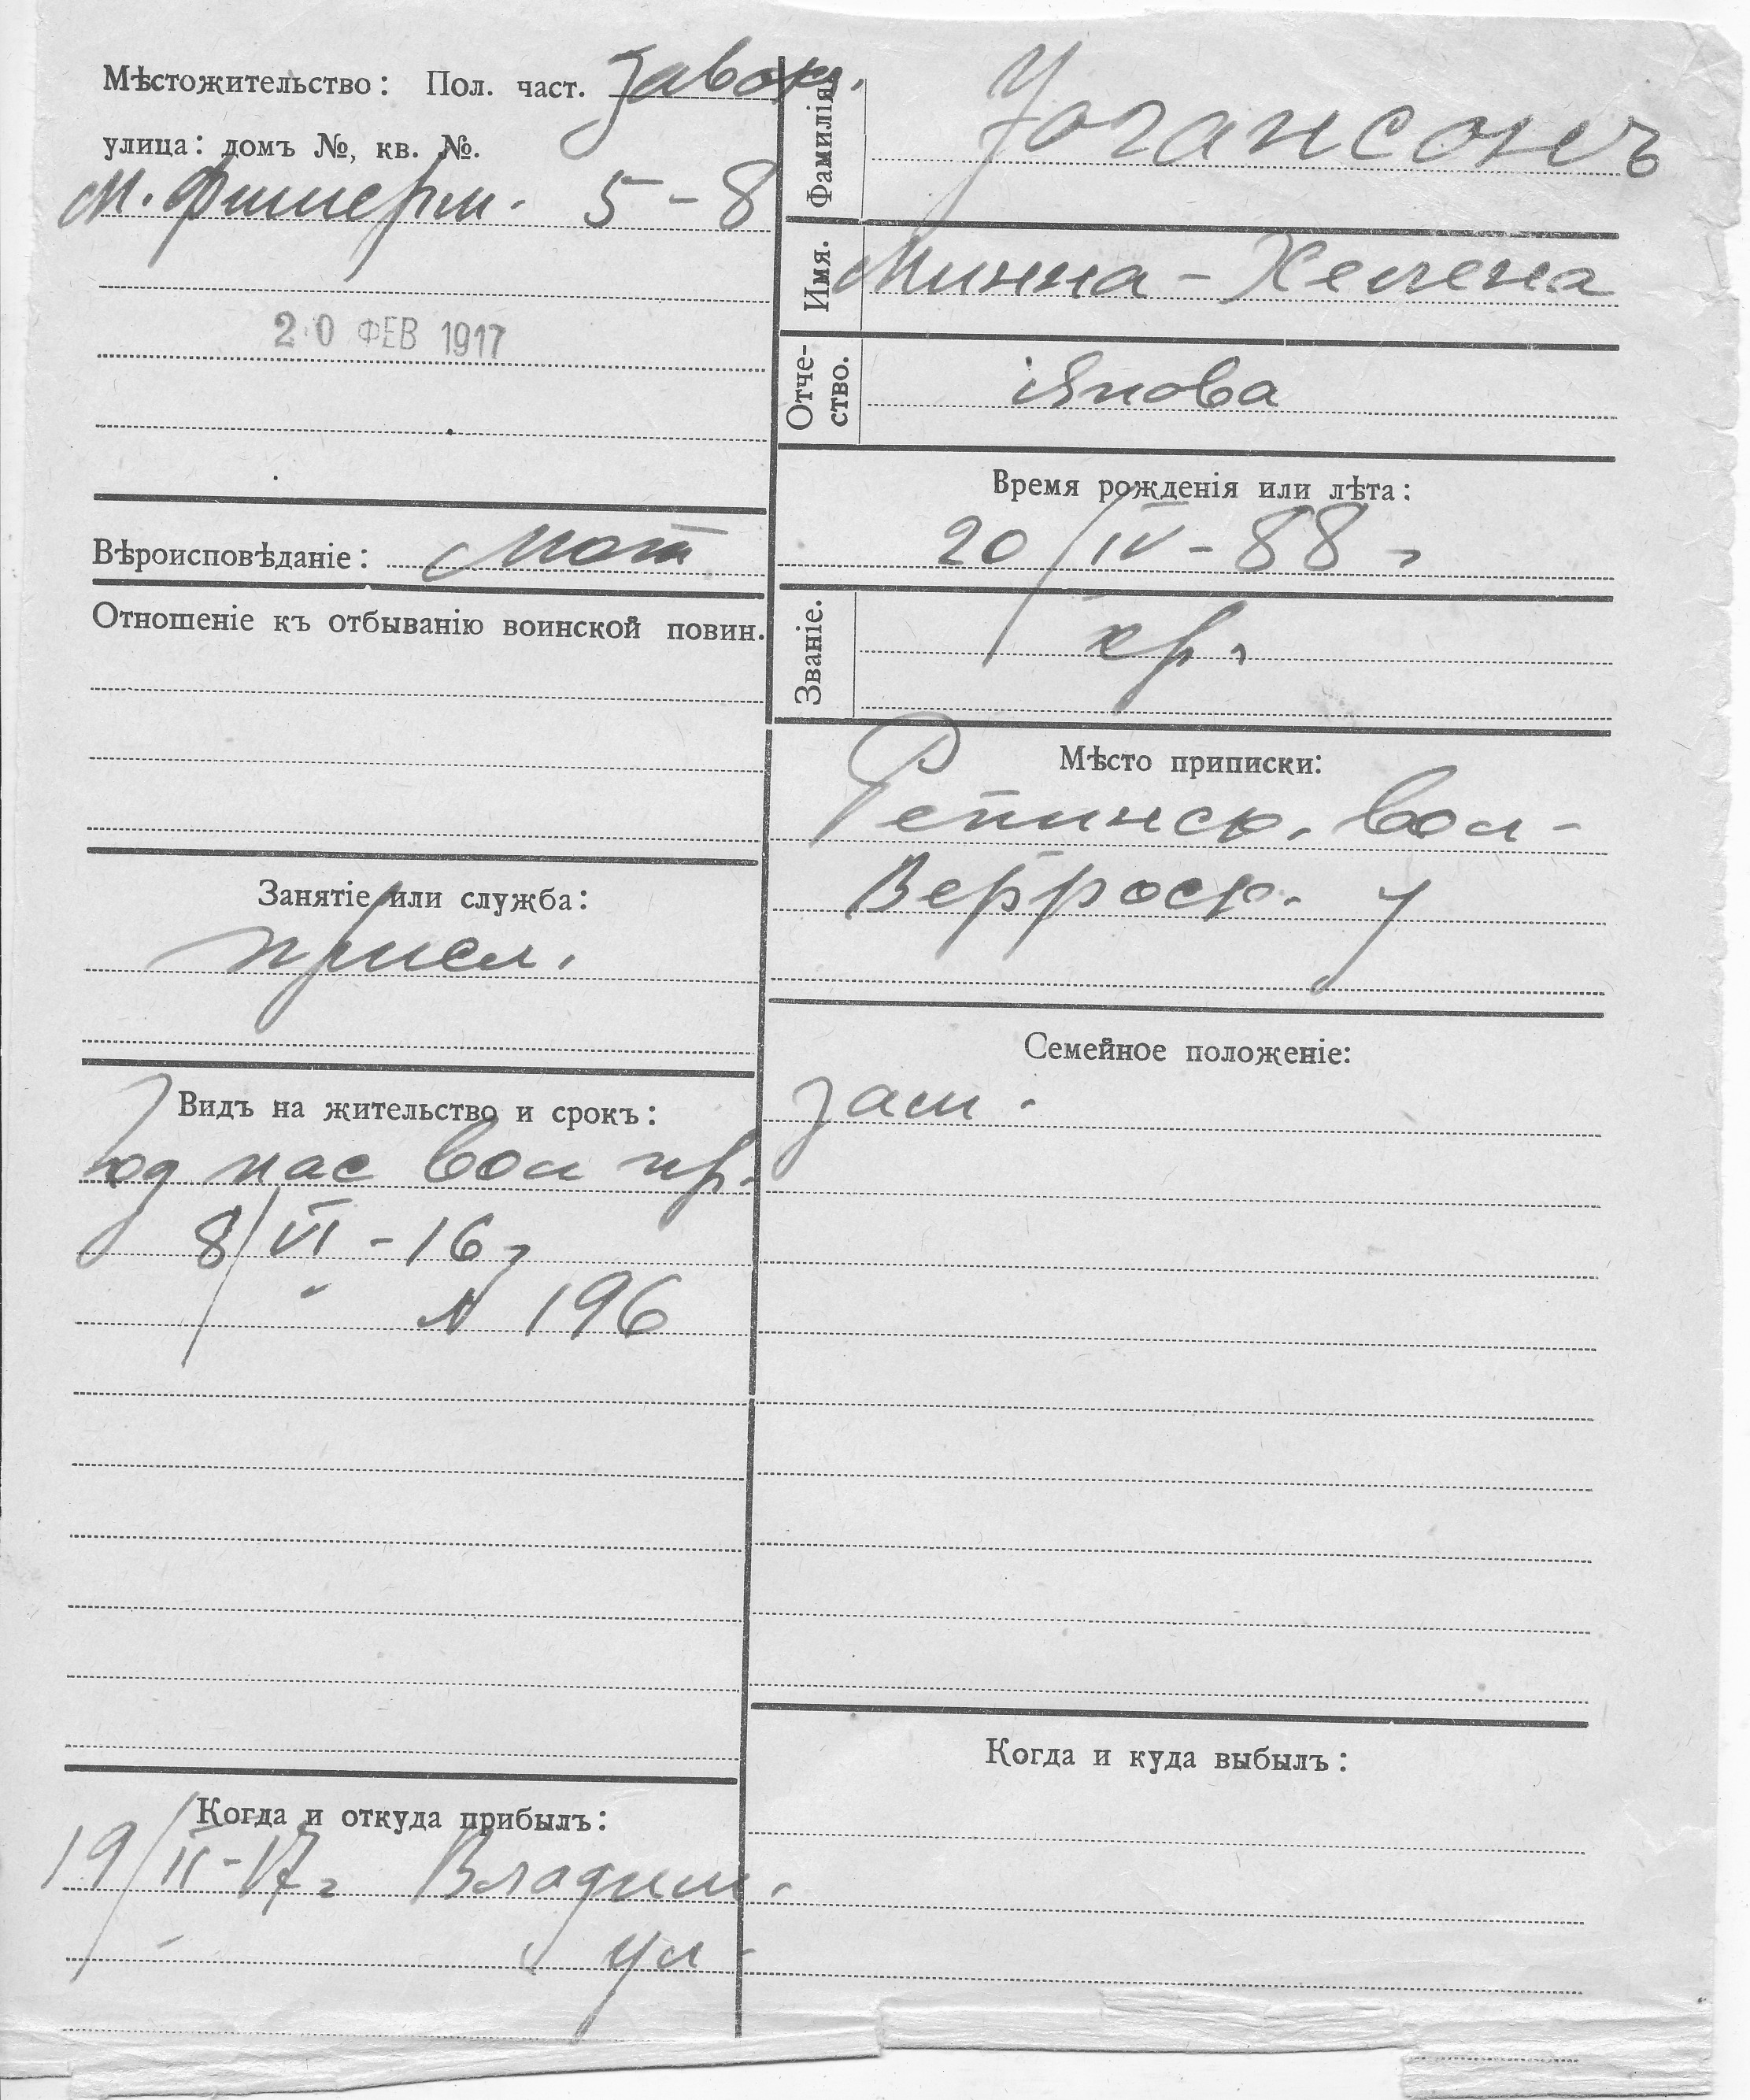 Мѣстожительство: Пол. част. Завок.
улица: домъ №, кв. №.
М. Фишерм. 5-8
20 ФЕВ 1917
Вѣроисповѣданіе: лют
Отношеніе къ отбыванію воинской повин.
Занятіе или служба:
присл.
Видъ на жительство и срокъ:
год пас вол пр.
8/VI-16 г
№ 196
Когда и откуда прибылъ:
19/II-17 г Владим.
ул-
Фамилія
Іогансонъ
Имя.
Минна-Хелена
Отче-
ство.
Янова
Время рожденія или лѣта:
20/IV-88 г
Званіе.
кр.
Мѣсто приписки:
Репинск. вол-
Верроск. у
Семейное положеніе:
зам.
Когда и куда выбылъ: